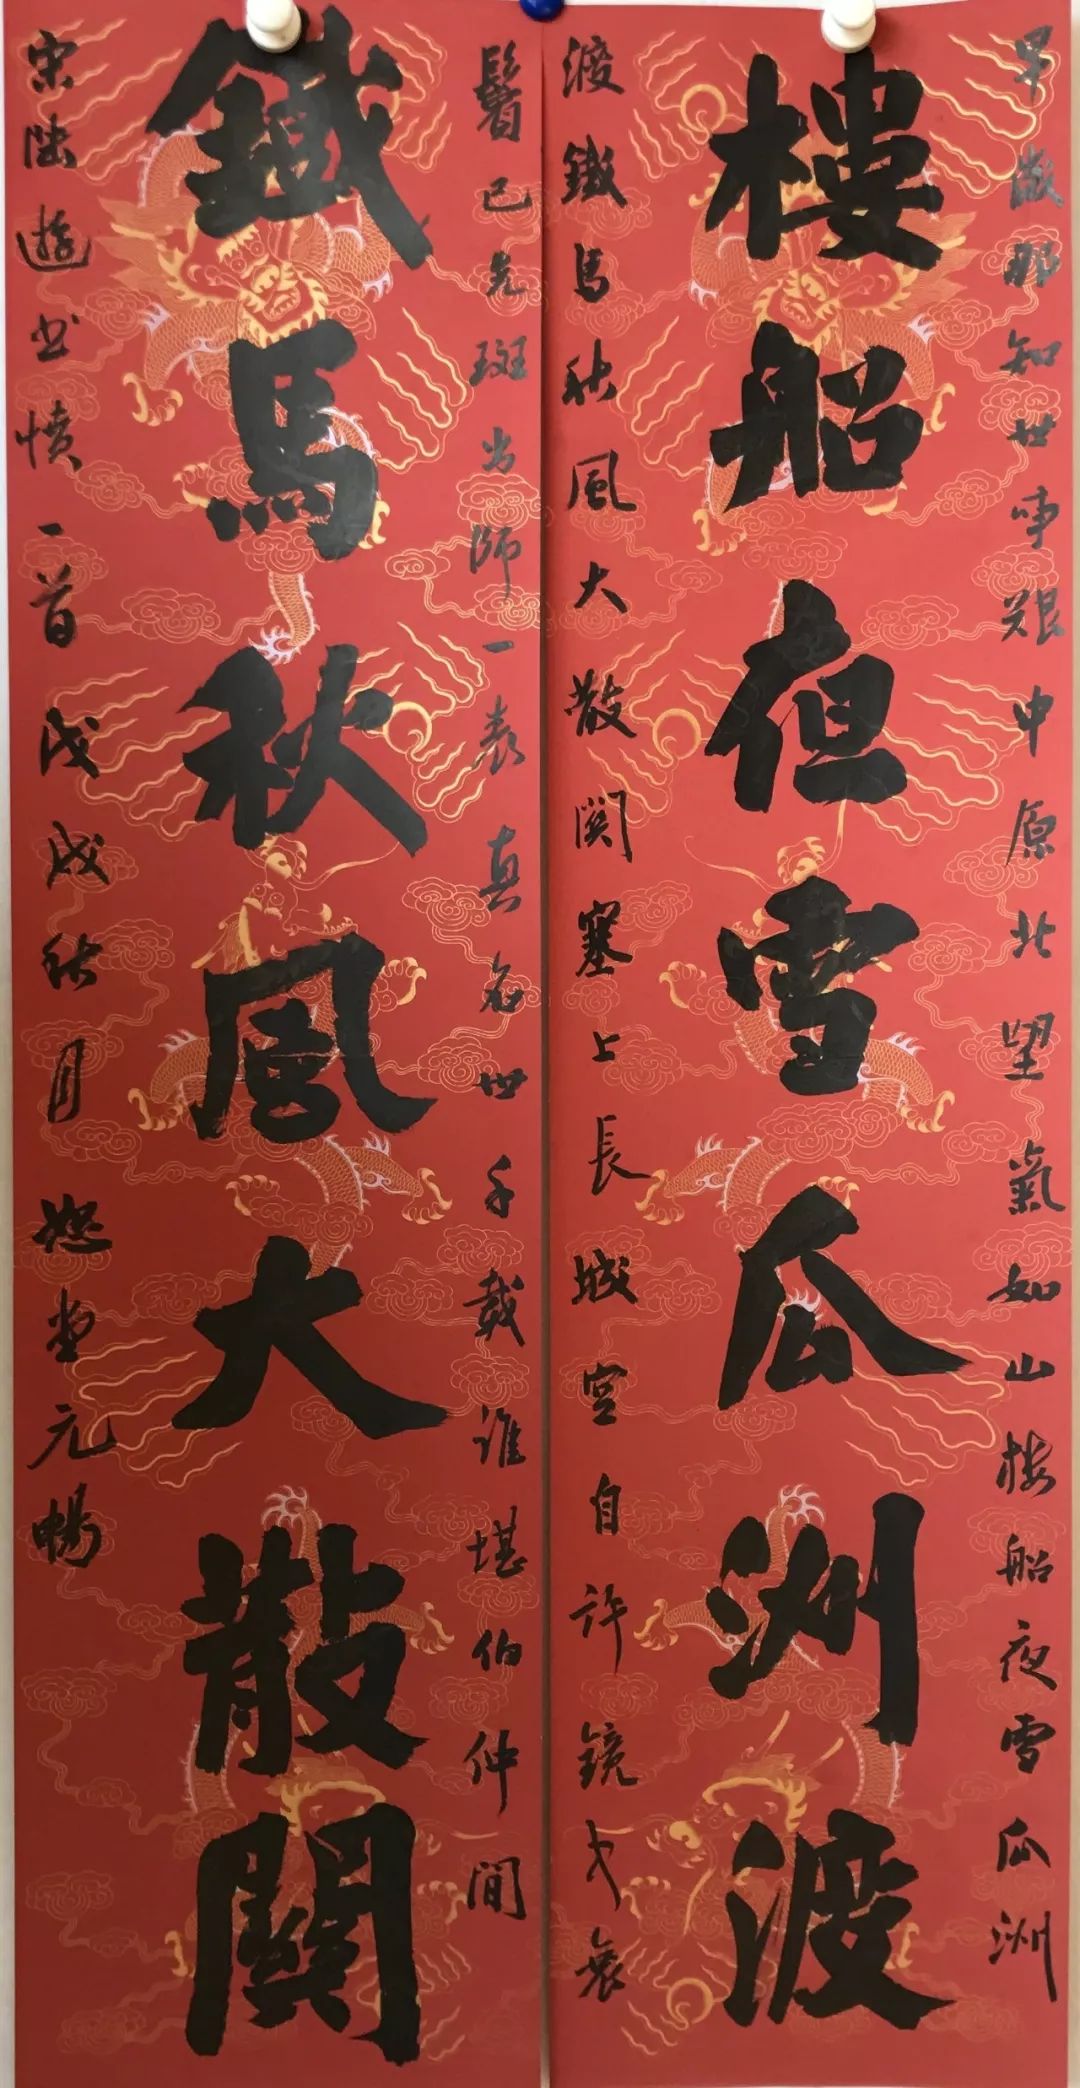 早歲那知世事艱中原北望氣如山樓船夜雪瓜洲
樓船夜雪瓜洲渡
渡鐵馬秋風大散關塞上長城空自許鏡中衰
鬢已先斑出師一表真名世千載誰堪伯仲間
鐵馬秋風大散關
宋陸遊書憤一首戊戌秋月堂元暢